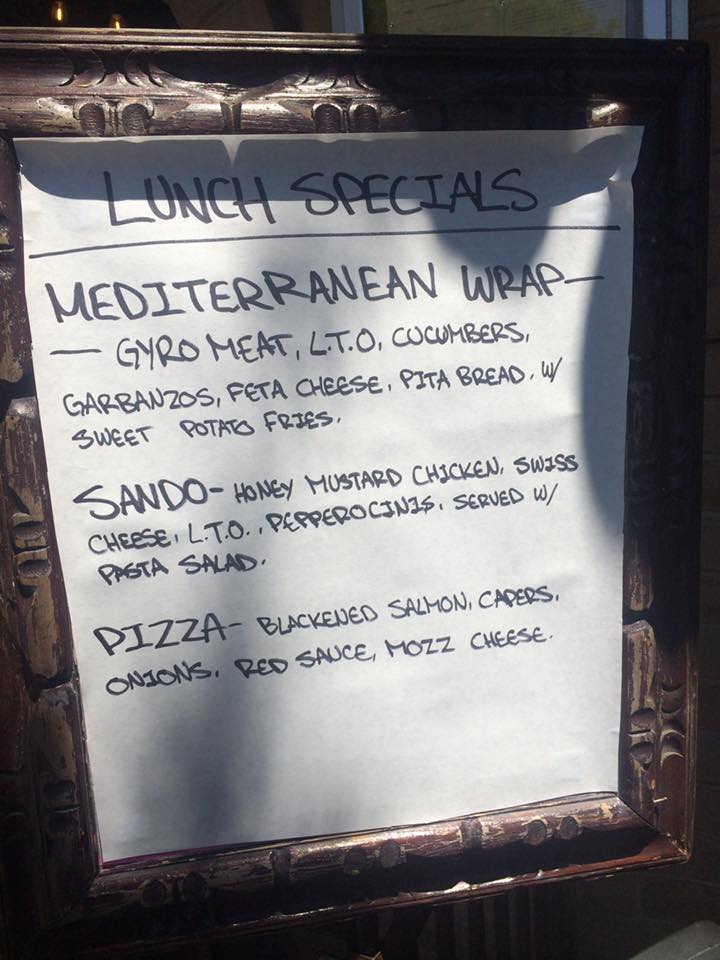 LUNCH SPECIALS
MEDITERRANEAN WRAP-
- GYRO MEAT, L.T.O, CUCUMBERS,
GARBANZOS, FETA CHEESE, PITA BREAD. W/
SWEET POTATO FRIES.
SANDO- HONEY MUSTARD CHICKEN, SWISS
CHEESE, L.T.O., PEPPEROCINIS. SERVED W/
PASTA SALAD.
PIZZA- BLACKENED SALMON, CAPERS,
ONIONS, RED SAUCE, MOZZ CHEESE.